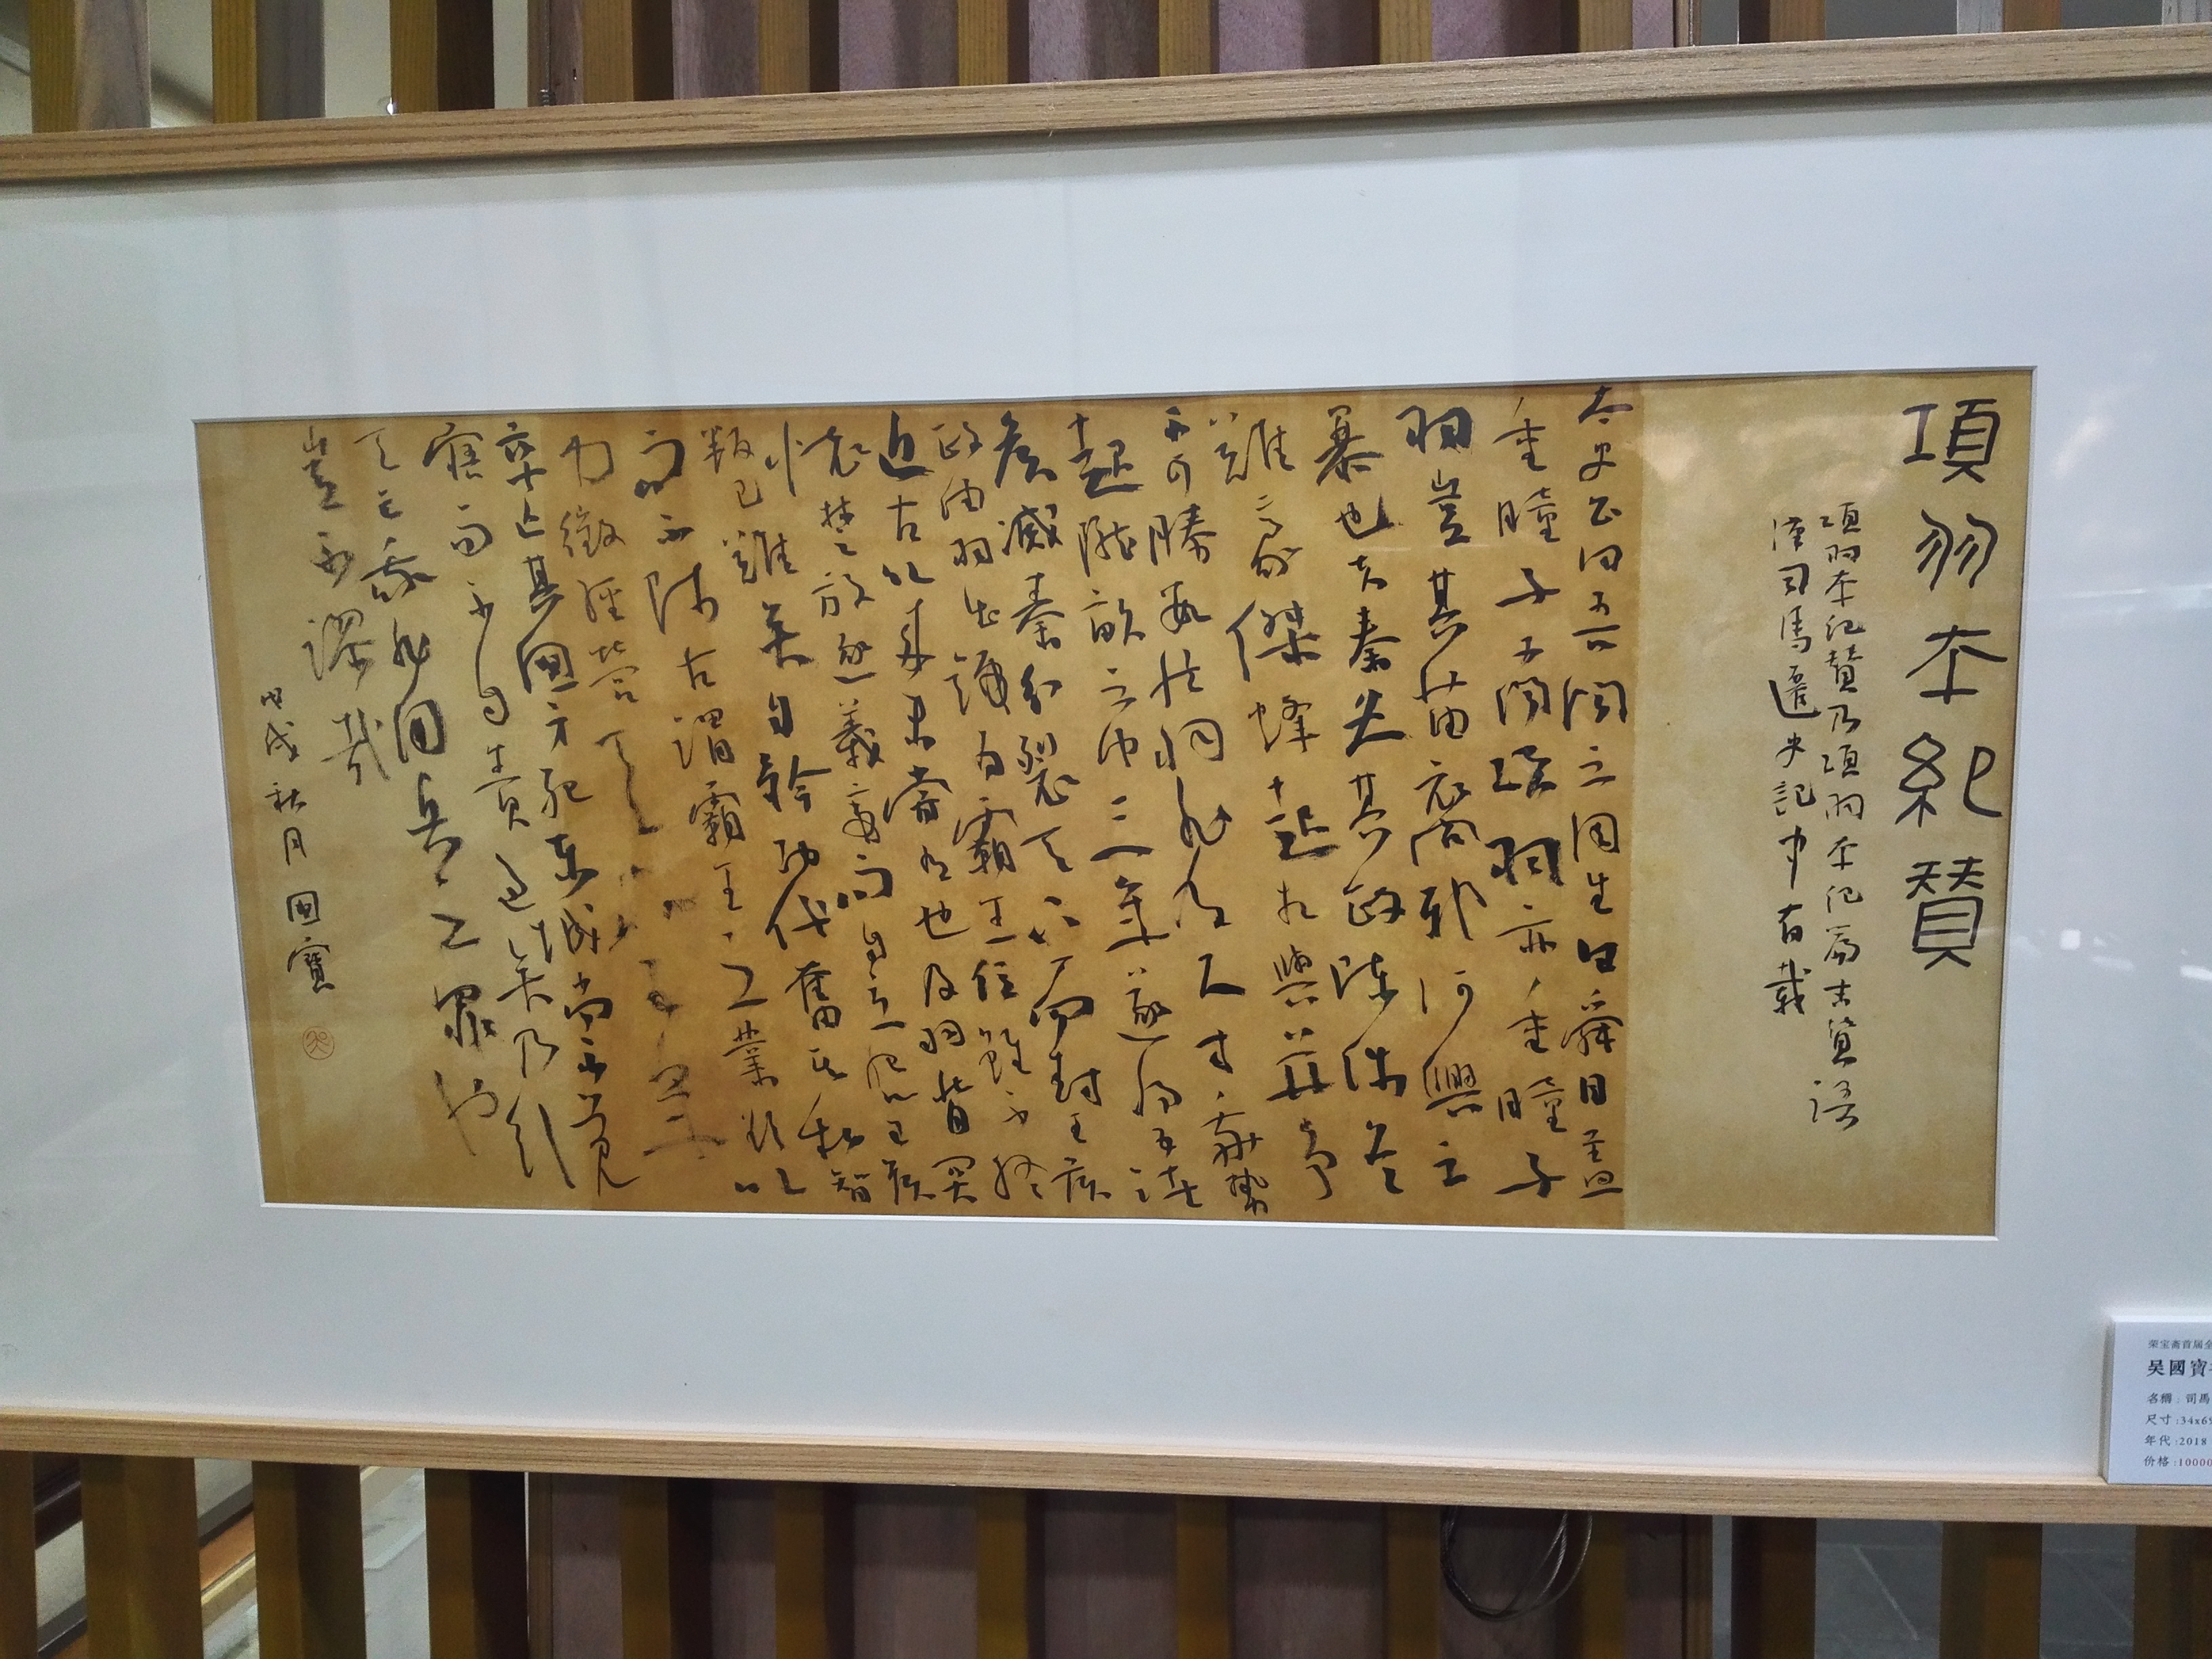 項羽本紀賛
項羽本紀賛乃項羽本紀篇末贊語
漢司馬遷史記中有載
太史公曰吾聞之周生曰舜目蓋
重瞳子又聞項羽亦重瞳子
羽豈其苗裔邪何興之
暴也夫秦失其政陳涉首
難豪傑蜂起相與並爭
不可勝數然羽非有尺寸乘勢
起隴畝之中三年遂將五諸
侯滅秦分裂天下而封王侯
政由羽出號為霸王位雖不終
近古以來未嘗有也及羽背關
懷楚放逐義帝而自立怨王侯
叛己難矣自矜功伐奮其私智
而不師古謂霸王之業欲以
力徵經營天下五年
卒亡其國身死東城尚不覺
寤而不自責過矣乃引
天亡我非用兵之罪也
豈不謬哉
戊戌秋月國寶
荣宝斋首届全
吴國寶
名稱：司馬
尺寸：34x69
年代：2018
价格：10000